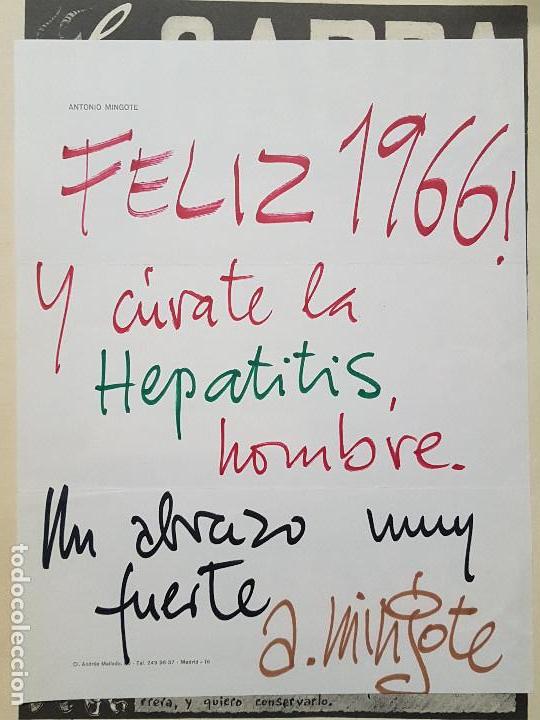 ANTONIO MINGOTE
FELIZ 1966!
Y cúrate la
Hepatitis,
hombre.
Un abrazo muy
fuerte
a. mingote
Cl. Andrés Mellado, - Tel. 249 96 37 - Madrid - 15
rrera, y quiero conservarlo.
todocoleccion